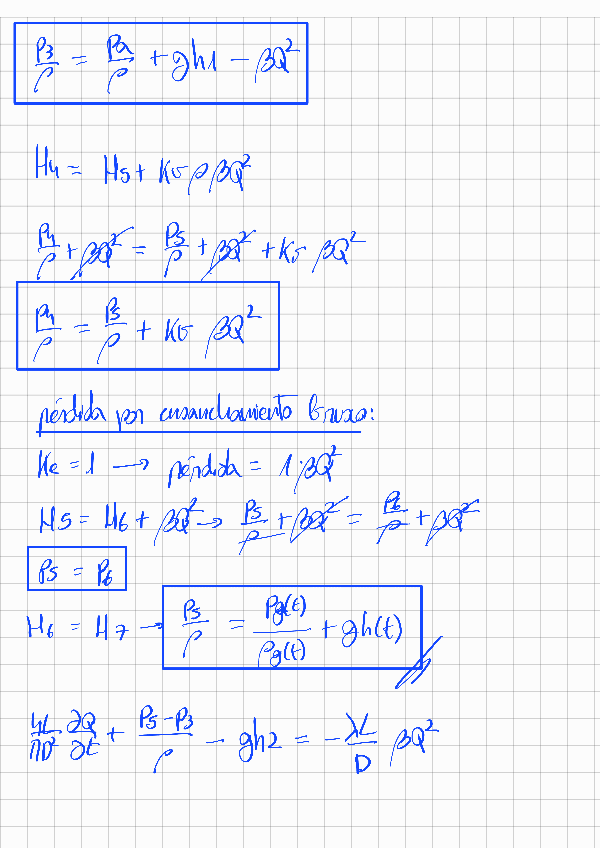 P3/ρ = Pa/ρ + gh1 − βQ²
H4 = H5 + Kv ρ βQ²
P4/ρ + βQ² = P5/ρ + βQ² + Kv βQ²
P4/ρ = P5/ρ + Kv βQ²
pérdida por ensanchamiento brusco:
Ke = 1 → pérdida = 1·βQ²
H5 = H6 + βQ² → P5/ρ + βQ² = P6/ρ + βQ²
P5 = P6
H6 = H7 → P5/ρ = Pg(t)/ρg(t) + gh(t)
4L/πD² ∂Q/∂t + P5−P3/ρ − gh2 = −λL/D βQ²